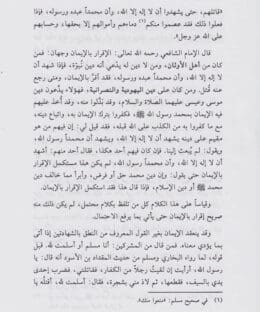 «قاتلهم، حتى يشهدوا أن لا إله إلا الله، وأن محمداً عبده ورسوله، فإذا
فعلوا ذلك فقد عصموا منكم(١) دماءهم وأموالهم إلا بحقها، وحسابهم
على الله عز وجل».
قال الإمام الشافعي رحمه الله تعالى: الإقرار بالإيمان وجهان: فمن
كان من أهل الأوثان، ومن لا دين له يدعي أنه دين نبوة، فإذا شهد أن
لا إله إلا الله، وأن محمداً عبده ورسوله، فقد أقر بالإيمان، ومتى رجع
عنه قتل. ومن كان على دين اليهودية والنصرانية، فهؤلاء يدعون دين
موسى وعيسى عليهما الصلاة والسلام، وقد بدلوا منه، وقد أخذ عليهم
فيهما الإيمان بمحمد رسول الله ﷺ، فكفروا بترك الإيمان به، واتباع دينه،
مع ما كفروا به من الكذب على الله قبله، فقد قيل لي: إن فيهم من هو
مقيم على دينه يشهد أن لا إله إلا الله، ويشهد أن محمداً رسول الله،
ويقول: لم يبعث إلينا. فإن كان فيهم أحد هكذا، فقال أحد منهم: أشهد
أن لا إله إلا الله، وأن محمداً رسول الله، لم يكن هذا مستكمل الإقرار
بالإيمان حتى يقول: وإن دين محمد حق أو فرض، وأبرأ مما خالف دين
محمد ﷺ أو دين الإسلام، فإذا قال هذا فقد استكمل الإقرار بالإيمان.
وقياساً على هذا الكلام كل من تلفظ بكلام محتمل، لم يكن ذلك منه
صريح إقرار بالإيمان حتى يأتي بما يرفع الاحتمال.
وقد ينعقد الإيمان بغير القول المعروف من النطق بالشهادتين إذا أتى
بما يؤدي معناه. فمن قال من المشركين: أنا مسلم أو أسلمت لله، قبل
قوله، لما رواه البخاري ومسلم من حديث المقداد بن الأسود أنه قال: يا
رسول الله، أرأيت إن لقيت رجلاً من الكفار، فقاتلني، فضرب إحدى
يدي بالسيف، فقطعها، ثم لاذ مني بشجرة، فقال: أسلمت لله، أقتله يا
(١) في صحيح مسلم: «منعوا منك».